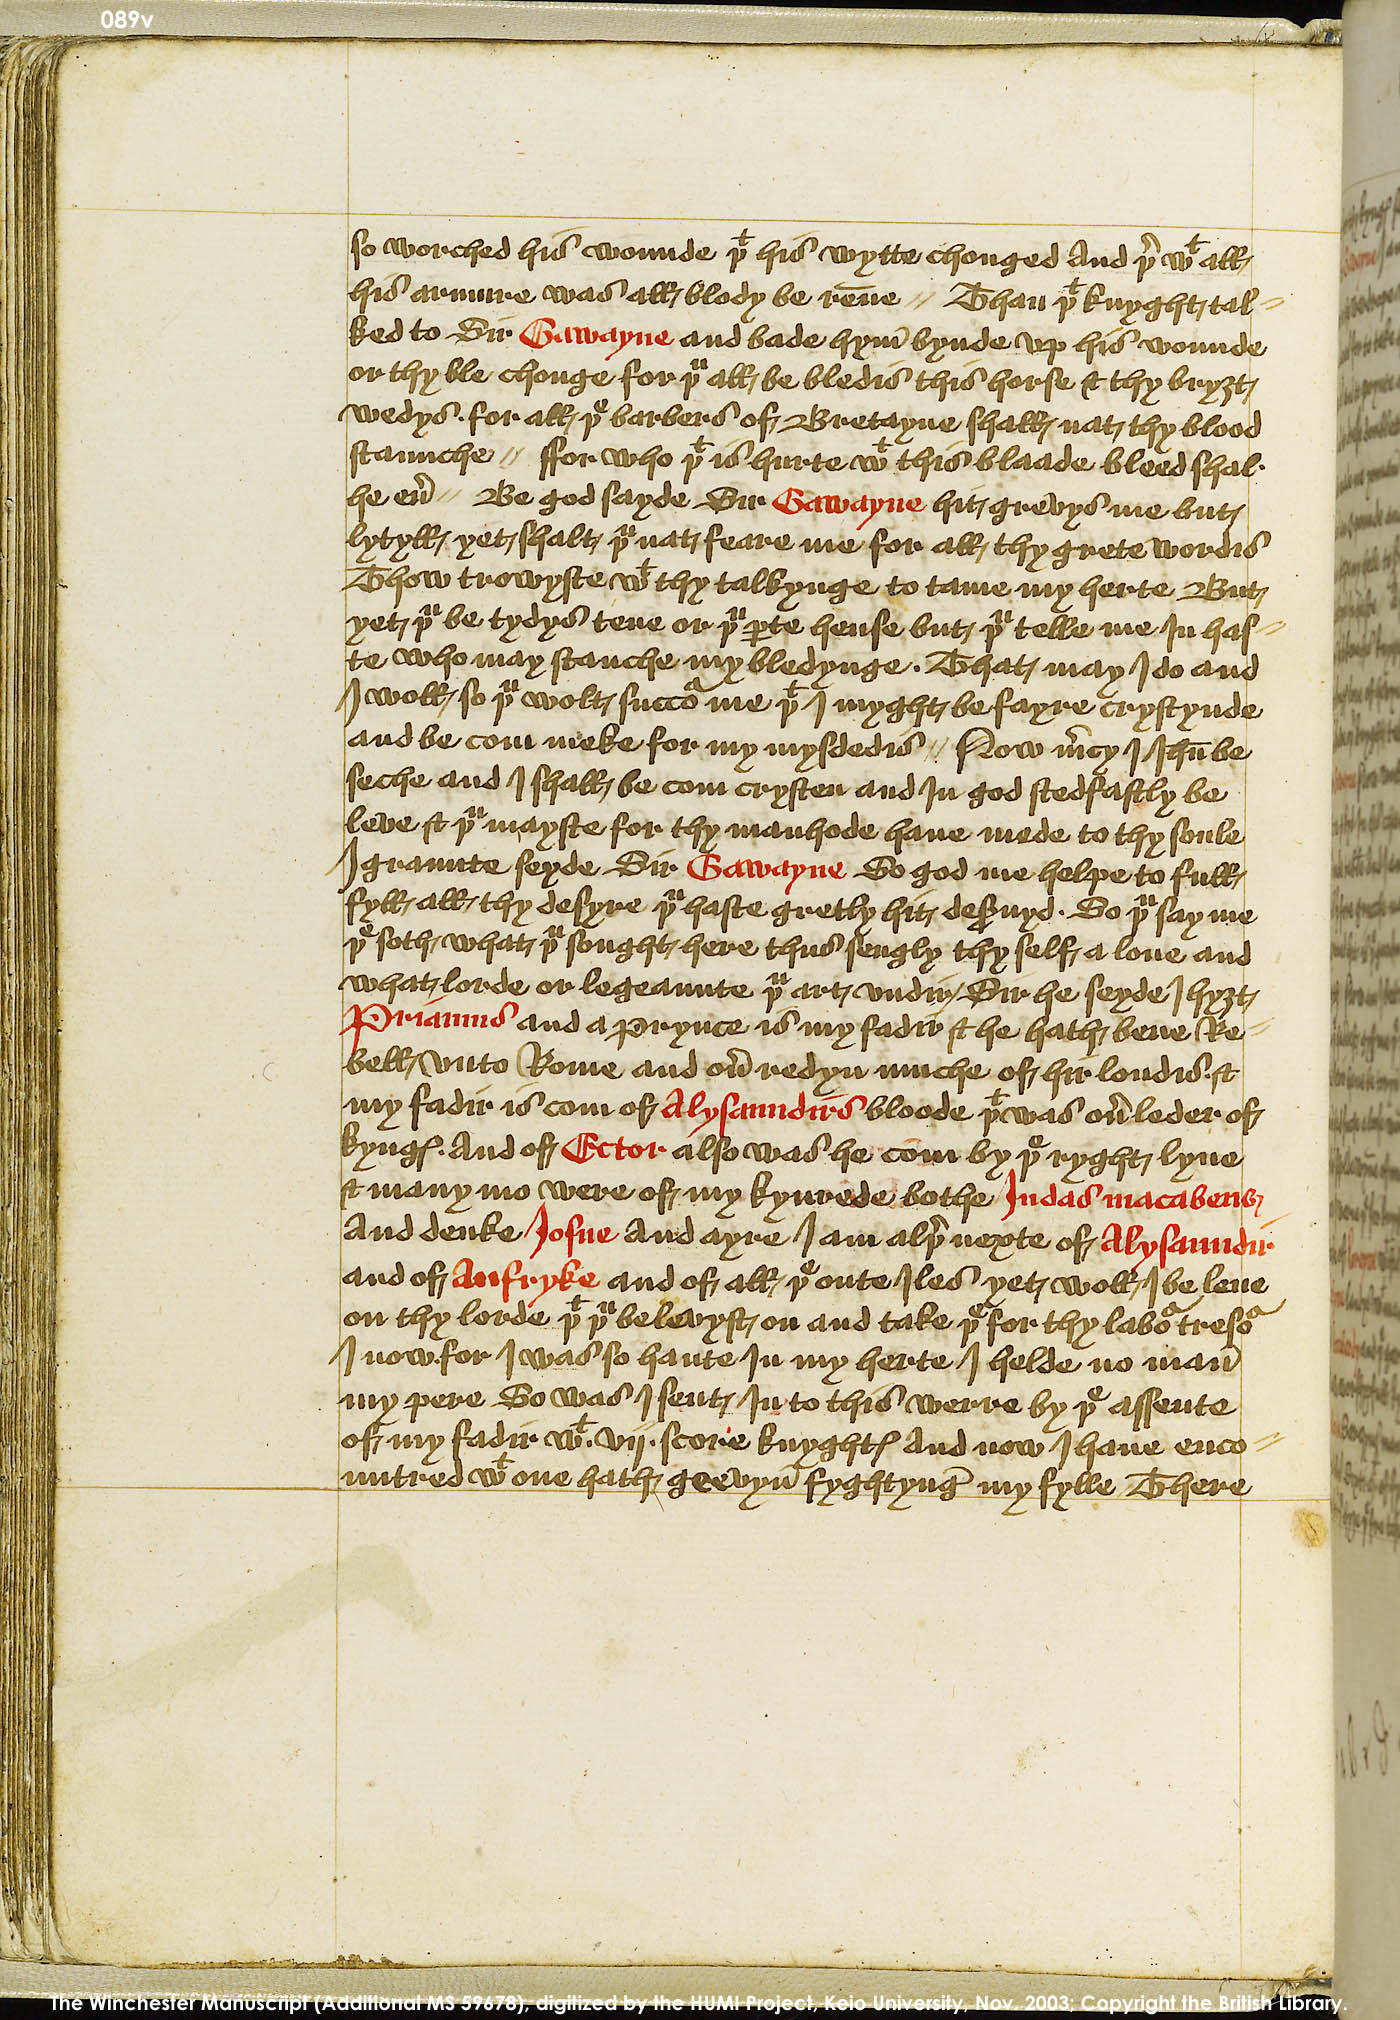 089v
so worched his wounde þͭ his wytte chonged And þͬ wͭ all
his armure was all blody be rēne // Than þͭ knyght tal=
ked to Sir Gawayne and bade hym̄ bynde vp his wounde
or thy ble chonge for þͧ all be bledis this horse & thy bryȝt
wedys. for all þͤ barbers of Bretayne shall nat thy blood
staunche // ffor who þͭ is hurte wͭ this blaade bleed shal.
he eu̾ // Be god sayde Sir Gawayne hit grevys me but
lytyll yet shalt þͧ nat feare me for all thy grete wordis
Thow trowyste wͭ thy talkynge to tame my herte But
yet þͧ be tydys tene or þͧ ꝑte hense but þͧ telle me In has=
te who may stanche my bledynge. That may I do and
I woll so þͧ wolt succoͬ me þͭ I myght be fayre crystynde
and be com meke for my mysdedis // Now m̾cy I Jhū be
seche and I shall be com crysten and In god stedfastly be
leve & þͧ mayste for thy manhode haue mede to thy soule
I graunte seyde Sir Gawayne So god me helpe to full
fyll all thy desyre þͧ haste gretly hit des̾uyd. So þͧ say me
þͤ soth what þͧ sought here thus sengly thy self a lone and
what lorde or legeaunte þͧ art vndir Sir he seyde I hyȝt
Priamus and a Prynce is my fadir & he hath bene Re=
bell vnto Rome and ou̾ redyn muche of hir londis. &
my fadir is com of Alysaundirs bloode þͭ was ou̾ leder of
kyngꝭ. And of Ector also was he com by þͤ ryght lyne
& many mo were of my kynrede bothe Judas macabeus
And deuke Josue And ayre I am alþͬ nexte of Alysaundir
and of Aufryke and of all þͤ oute Iles yet woll I be leue
on thy lorde þͭ þͧ belevyst on and take þͤ for thy laboͬ tresoͬ
I now. for I was so haute In my herte I helde no man̄
my pere So was I sent In to this werre by þͤ assente
of my fadir wͭ. vij. score knyghtꝭ And now I haue enco=
untred wͭ one hath geevyn̄ fyghtyng̾ my fylle There
The Winchester Manuscript (Additional MS 59678), digitized by the HUMI Project, Keio University, Nov. 2003; Copyright the British Library.